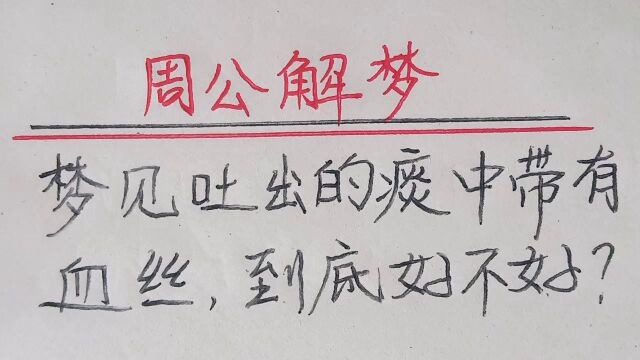 周公解梦
梦见吐出的痰中带有
血丝,到底好不好?